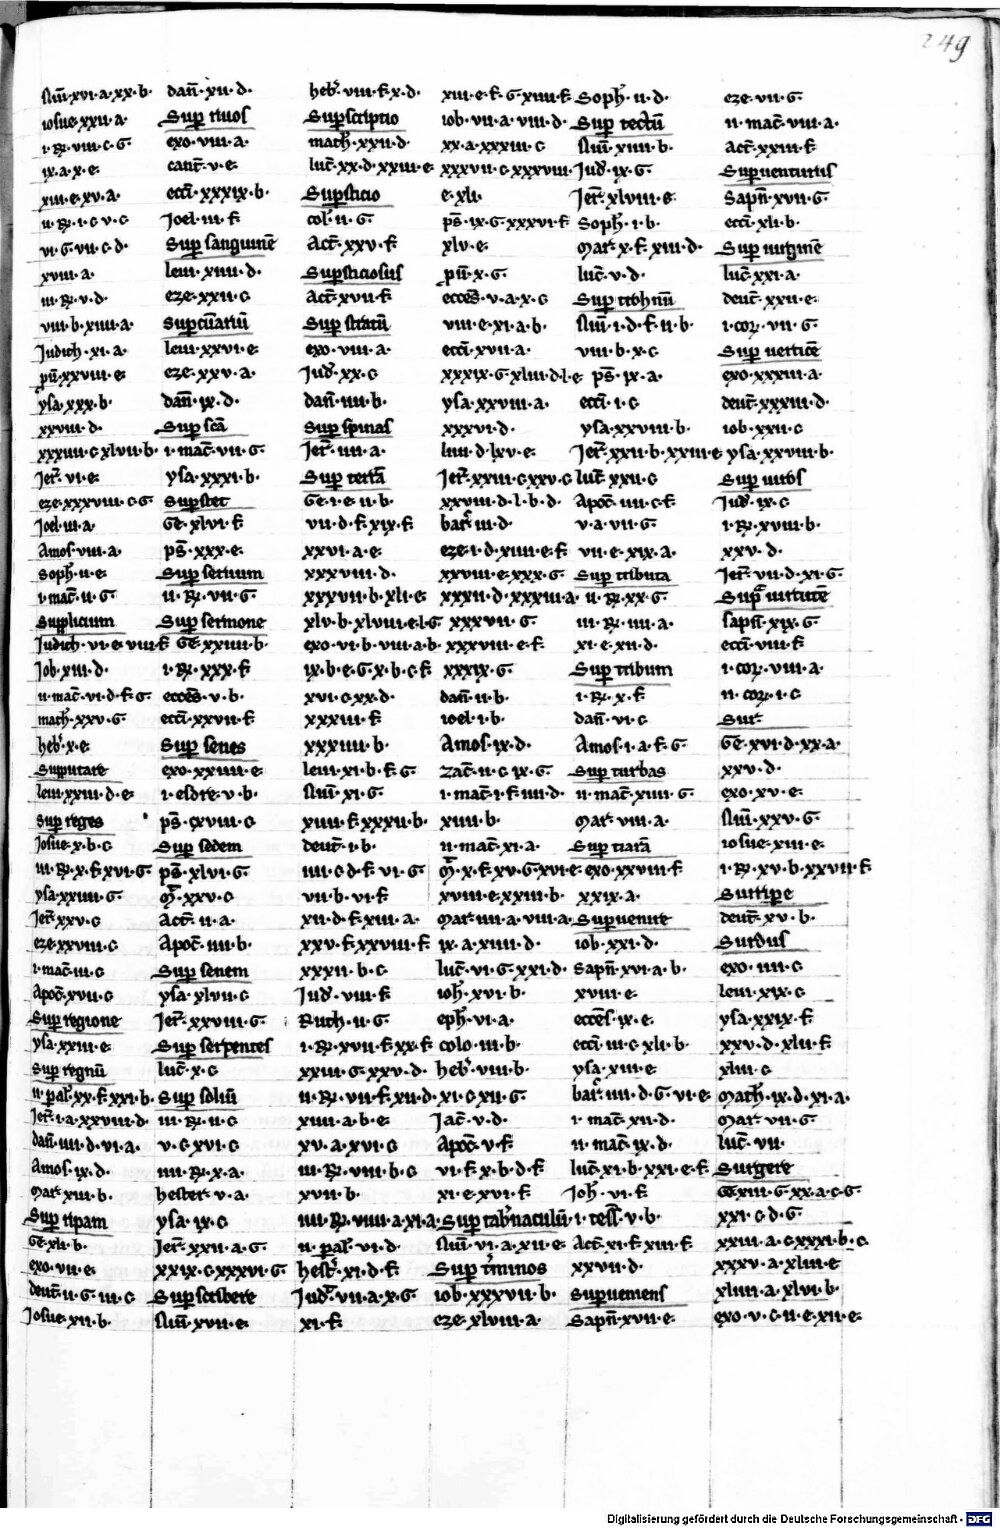 249
Nūi·xvi·a·xx·b·
iosue·xxii·a·
i·R̄·viii·c·G
ix·a·x·e·
xiii·e·xv·a·
ii·R̄·i·c·v·c
vi·G·vii·c·d·
xviii·a·
iii·R̄·v·d·
viii·b·xiiii·a·
Judich·xi·a·
pū·xxviii·e·
ysa·xxx·b·
xxviii·d·
xxxiiii·c·xlvii·b·
Jer̄·vi·e·
eze·xxxviii·c·G
Joel·iii·a·
Amos·viii·a·
soph̄·ii·e·
i·mac̄·ii·G
Supplicium
Judich·vi·e·viii·f
Job·xiii·d·
ii·mac̄·vi·d·f·G
math̄·xxv·G·
heb̄·x·e·
Supputare
leui·xxiii·d·e·
Sup reges
Josue·x·b·c
iii·R̄·x·f·xvi·G
ysa·xxiiii·G·
Jer̄·xxv·c
eze·xxviii·c
i·mac̄·iii·c
Apoc̄·xvii·c
Sup regione
ysa·xxiii·e·
Sup regnū
ii·pal̄·xx·f·xxi·b·
Jer̄·i·a·xxviii·d·
dan̄·iiii·d·vi·a·
Amos·ix·d·
Mar̄·xiii·b·
Sup ripam
Ge·xli·b·
exo·vii·e·
deut̄·ii·G·iii·c
Josue·xii·b·
dan̄·xii·d·
Sup riuos
exo·viii·a·
cant̄·v·e·
ecci·xxxix·b·
Joel·iii·f
Sup sanguinē
leui·xiiii·d·
eze·xxii·c
Supcūariū
leui·xxvi·e·
eze·xxv·a·
dan̄·ix·d·
Sup scā
i·mac̄·vii·G
ysa·xxxi·b·
Supstet
Ge·xlvi·f
ps̄·xxx·e·
Sup seruum
ii·R̄·vii·G·
Sup sermone
Ge·xxiiii·b·
i·R̄·xxx·f
ecces̄·v·b·
ecci·xxvii·f
Sup senes
exo·xxiiii·e·
i·esdre·v·b·
ps̄·cxviii·c
Sup sedem
ps̄·xlvi·G·
xxv·c
Act̄·ii·a·
Apoc̄·iiii·b·
Sup senem
ysa·xlvii·c
Jer̄·xxviii·G·
Sup serpentes
luc̄·x·c
Sup soliū
iii·R̄·ii·c
v·c·xvi·c
iiii·R̄·x·a·
hester·v·a·
ysa·ix·c
Jer̄·xxii·a·G·
xxix·c·xxxvi·G
Sup scribere
Nūi·xvii·e·
heb̄·viii·f·x·d·
Supscriptio
math̄·xxii·d·
luc̄·xx·d·xxiii·e·
Supsticio
col̄·ii·G·
Act̄·xxv·f
Supsticiosus
Act̄·xvii·f
Sup stratū
exo·viii·a·
Jud̄·xx·c
dan̄·iiii·b·
Sup spinas
Jer̄·iiii·a·
Sup terrā
Ge·i·e·ii·b·
vii·d·f·xix·f
xxvi·a·e·
xxxviii·d·
xxxvii·b·xli·e·
xlv·b·xlviii·e·l·G·
exo·vi·b·viii·a·b·
ix·b·e·G·x·b·c·f
xvi·c·xx·d·
xxxiii·f
xxxiiii·b·
leui·xi·b·f·G
Nūi·xi·G·
xiiii·f·xxxv·b·
deut̄·i·b·
iiii·c·d·f·vi·G·
vii·b·vi·f
xii·d·f·xiii·a·
xxv·f·xxviii·f
xxxii·b·c
Jud̄·viii·f
Ruth·ii·G·
i·R̄·xvii·f·xx·f
xxiii·G·xxv·d·
ii·R̄·vii·f·xii·d·
xiiii·a·b·e·
xv·a·xvi·c
iii·R̄·viii·b·c
xvii·b·
iiii·R̄·viiii·a·xi·a·
ii·pal̄·vi·d·
hest̄·xi·d·f·
Jud̄·vii·a·x·G
xi·f
xiii·e·f·G·xiiii·f
iob·vii·a·viii·d·
xx·a·xxxiii·c
xxxvii·c·xxxviii·
e·xli·
ps̄·ix·G·xxxvi·f
xlv·e·
pū·x·G·
ecces̄·v·a·x·c
viii·e·xi·a·b·
ecci·xvii·a·
xxxix·G·xlii·d·l·e·
ysa·xxviii·a·
xxxvi·d·
liiii·d·lxv·e·
Jer̄·xxiii·c·xxv·c
xxviii·d·l·b·d·
bar̄·iii·d·
eze·i·d·xiiii·e·f
xxviii·e·xxx·G
xxxii·d·xxxiii·a·
xxxvii·G·
xxxviii·e·f
xxxix·G·
dan̄·ii·b·
ioel·i·b·
Amos·ix·d·
zac̄·ii·c·ix·G·
i·mac̄·i·f·iiii·d·
xiii·b·
ii·mac̄·xi·a·
x·f·xv·G·xvi·e·
xviii·e·xxiii·b·
Mar̄·iiii·a·viii·a·
ix·a·xiiii·d·
luc̄·vi·G·xxi·d·
ioh̄·xvi·b·
eph̄·vi·a·
colo·iii·b·
heb̄·viii·b·
xi·c·xii·G·
Jac̄·v·d·
Apoc̄·v·f·
vi·f·x·b·d·f
xi·e·xvi·f·
Sup tab̄naculū
Nūi·vi·a·xii·e·
Sup t̄minos
iob·xxxvii·b·
eze·xlviii·a·
Soph̄·ii·d·
Sup tectū
Nūi·xiiii·b·
Jud̄·ix·G·
Jer̄·xlviii·e·
Soph̄·i·b·
Mar̄·x·f·xiii·d·
luc̄·v·d·
Nūi·i·d·f·ii·b·
viii·b·x·c
ps̄·ix·a·
ecci·i·c
ysa·xxviii·b·
Jer̄·xxii·b·xxiii·e·
luc̄·xxii·c
Apoc̄·iiii·c·f
v·a·vii·G·
vii·e·xix·a·
Sup tributa
ii·R̄·xx·G·
iii·R̄·iiii·a·
xi·e·xii·d·
Sup tribum
i·R̄·x·f·
dan̄·vi·c
Amos·i·a·f·G
Sup turbas
ii·mac̄·xiiii·G·
Mar̄·viii·a·
Sup tiarā
exo·xxviii·f
xxix·a·
Superuenire
iob·xxi·d·
Sapn̄·xvi·a·b·
xviii·e·
ecces̄·ix·e·
ecci·iii·c·xli·b·
ysa·xiii·e·
bar̄·iiii·d·G·vi·e·
i·mac̄·xii·d·
ii·mac̄·ix·d·
luc̄·xi·b·xxi·e·f
Joh̄·vi·f
i·tess̄·v·b·
Act̄·xi·f·xiii·f·
xxvii·d·
Superueniens
Sapn̄·xvii·e·
eze·vii·G·
ii·mac̄·viii·a·
Act̄·xxiii·f
Superuenturus
Sapn̄·xvii·G·
ecci·xli·b·
Sup uirginē
luc̄·xxi·a·
deut̄·xxii·e·
i·cor̄·vii·G·
Sup uerticē
exo·xxxiii·a·
deut̄·xxxiii·d·
iob·xxii·c
ysa·xxviii·b·
Sup urbs
Jud̄·ix·c
i·R̄·xviii·b·
xxv·d·
Jer̄·vii·d·xi·G·
Sup̄ uirtutē
sapn̄·xix·G·
ecci·viii·f
i·cor̄·viii·a·
ii·cor̄·i·c
Sur
Ge·xvi·d·xx·a·
xxv·d·
exo·xv·e·
Nūi·xxv·G·
iosue·xiii·e·
i·R̄·xv·b·xxvii·f
Surripe
deut̄·xv·b·
Surdus
exo·iiii·c
leui·xix·c
ysa·xxix·f
xxv·d·xlii·f
xliii·c
Math̄·ix·d·xi·a·
Mar̄·vii·G·
luc̄·vii·
Surgere
Ge·xiii·G·xx·a·c·G·
xxi·c·d·G·
xxiii·a·c·xxxi·b·c·
xxxv·a·xliii·e
xliiii·a·xlvi·b·
exo·v·c·ii·e·xii·e·
Digitalisierung gefördert durch die Deutsche Forschungsgemeinschaft - DFG